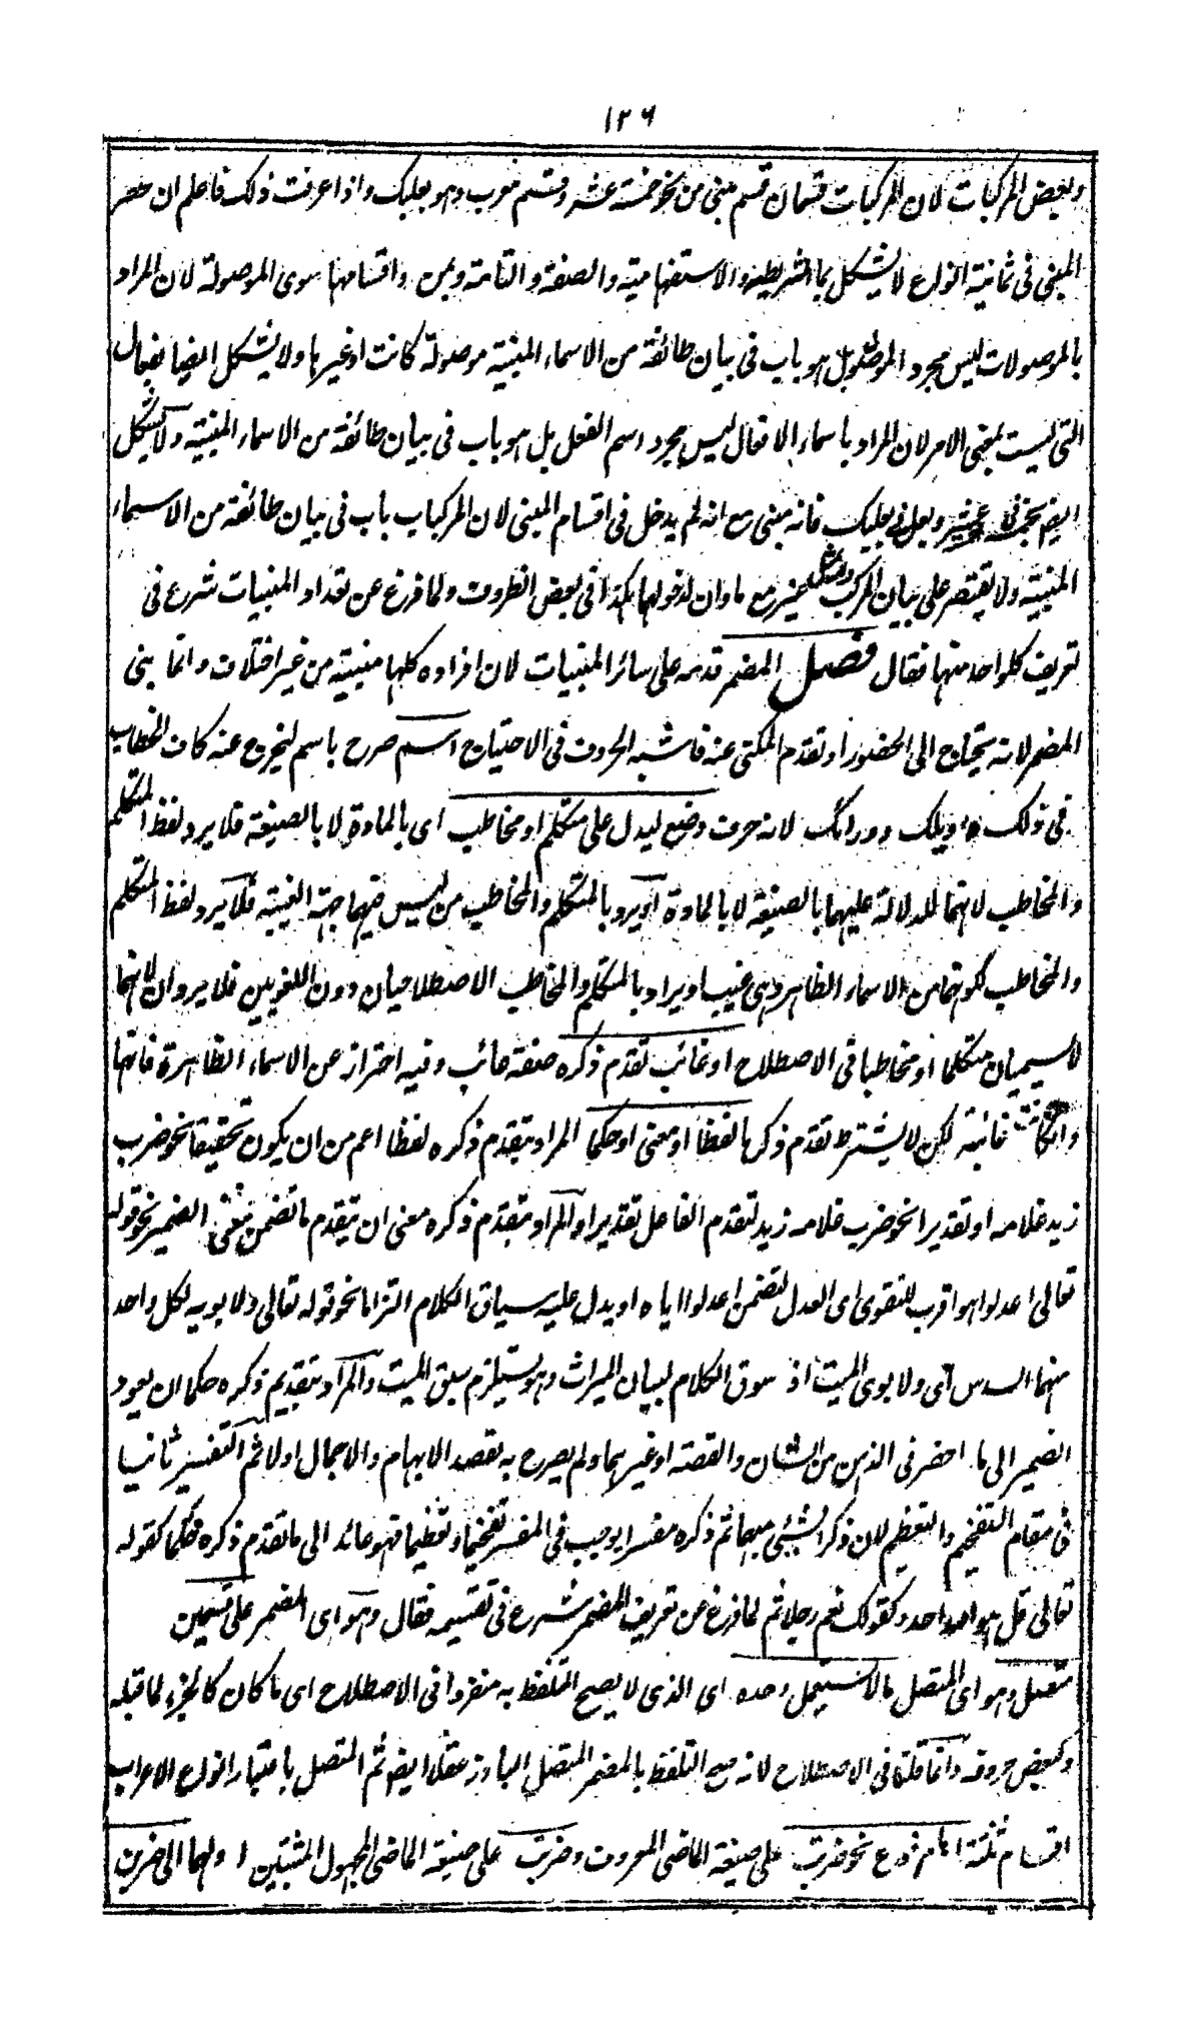 ١٢٦
وبعض المركبات لان المركبات قسمان قسم مبنى من نحو خمسة عشر وقسم معرب وهو بعلبك واذا عرفت ذلك فاعلم ان حصر
المبنى فى ثمانية انواع لا يشكل بما الشرطية والاستفهامية والصفة والتامة وبمن واقسامها سوى الموصولة لان المراد
بالموصولات ليس مجرد الموصول بل هو باب فى بيان طائفة من الاسماء المبنية موصولة كانت او غيرها ولا يشكل ايضا بفعال
التى ليست بمعنى الامر لان المراد باسماء الافعال ليس مجرد اسم الفعل بل هو باب فى بيان طائفة من الاسماء المبنية ولا يشكل
ايضا بخمسة فى خمسة عشر وبعل فى بعلبك فانه مبنى مع انه لم يدخل فى اقسام المبنى لان المركبات باب فى بيان طائفة من الاسماء
المبنية ولا يقتصر على بيان المركب مع ما وان لدخولهما فى بعض الظروف ولما فرغ عن تعداد المبنيات شرع فى
تعريف كل واحد منها فقال فصل المضمر قدمه على سائر المبنيات لان افراده كلها مبنية من غير اختلاف وانما بنى
المضمر لانه يحتاج الى الحضور او تقدم المكنى عنه فاشبه الحروف فى الاحتياج اسم صرح باسم ليخرج عنه كاف الخطاب
فى ذلك لانه حرف وضع ليدل على متكلم او مخاطب اى بالمادة لا بالصيغة فلا يرد لفظ المتكلم
والمخاطب لانهما للدلالة عليهما بالصيغة لا بالمادة او يريد بالمتكلم والمخاطب من ليس فيهما جهة الغيبة فلا يرد لفظ المتكلم
والمخاطب لكونهما من الاسماء الظاهرة وهى غيب او يراد بالمتكلم والمخاطب الاصطلاحيان دون اللغويين فلا يردان لانهما
لا يسميان متكلما او مخاطبا فى الاصطلاح او غائب تقدم ذكره صفة غائب وفيه احتراز عن الاسماء الظاهرة فانها
وان كانت غائبة لكن لا يشترط تقدم ذكرها لفظا او معنى او حكما المراد بتقدم ذكره لفظا اعم من ان يكون تحقيقا نحو ضرب
زيد غلامه او تقديرا نحو ضرب غلامه زيد لتقدم الفاعل تقديرا والمراد بتقدم ذكره معنى ان يتقدم ما تضمن معنى الضمير نحو قوله
تعالى اعدلوا هو اقرب للتقوى اى العدل لتضمن اعدلوا اياه او يدل عليه سياق الكلام التزاما نحو قوله تعالى ولابويه لكل واحد
منهما السدس اى ولابوى الميت اذ سوق الكلام لبيان الميراث وهو يستلزم سبق الميت والمراد بتقديم ذكره حكما ان يعود
الضمير الى ما احضر فى الذهن من الشان والقصة او غيرهما ولم يصرح به لقصد الابهام والاجمال اولا ثم التفسير ثانيا
فى مقام التفخيم والتعظيم لان ذكر الشئ مبهما ثم ذكره مفسرا يوجب فى المفسر تفخيما وتعظيما فهو عائد الى ما تقدم ذكره حكما كقوله
تعالى قل هو الله احد وكقولك نعم رجلا ثم لما فرغ عن تعريف المضمر شرع فى تقسيمه فقال وهو اى المضمر على قسمين
متصل وهو اى المتصل ما لا يستعمل وحده اى الذى لا يصح التلفظ به منفردا فى الاصطلاح اى ما كان كالجزء لما قبله
وكبعض حروفه وانما قلنا فى الاصطلاح لانه صح التلفظ بالمضمر المتصل البارز عقلا ايضا ثم المتصل باعتبار انواع الاعراب
اقسام ثلثة اما مرفوع نحو ضربت على صيغة الماضى المعروف وضربت على صيغة الماضى المجهول المثبتين اولهما الى ضربن